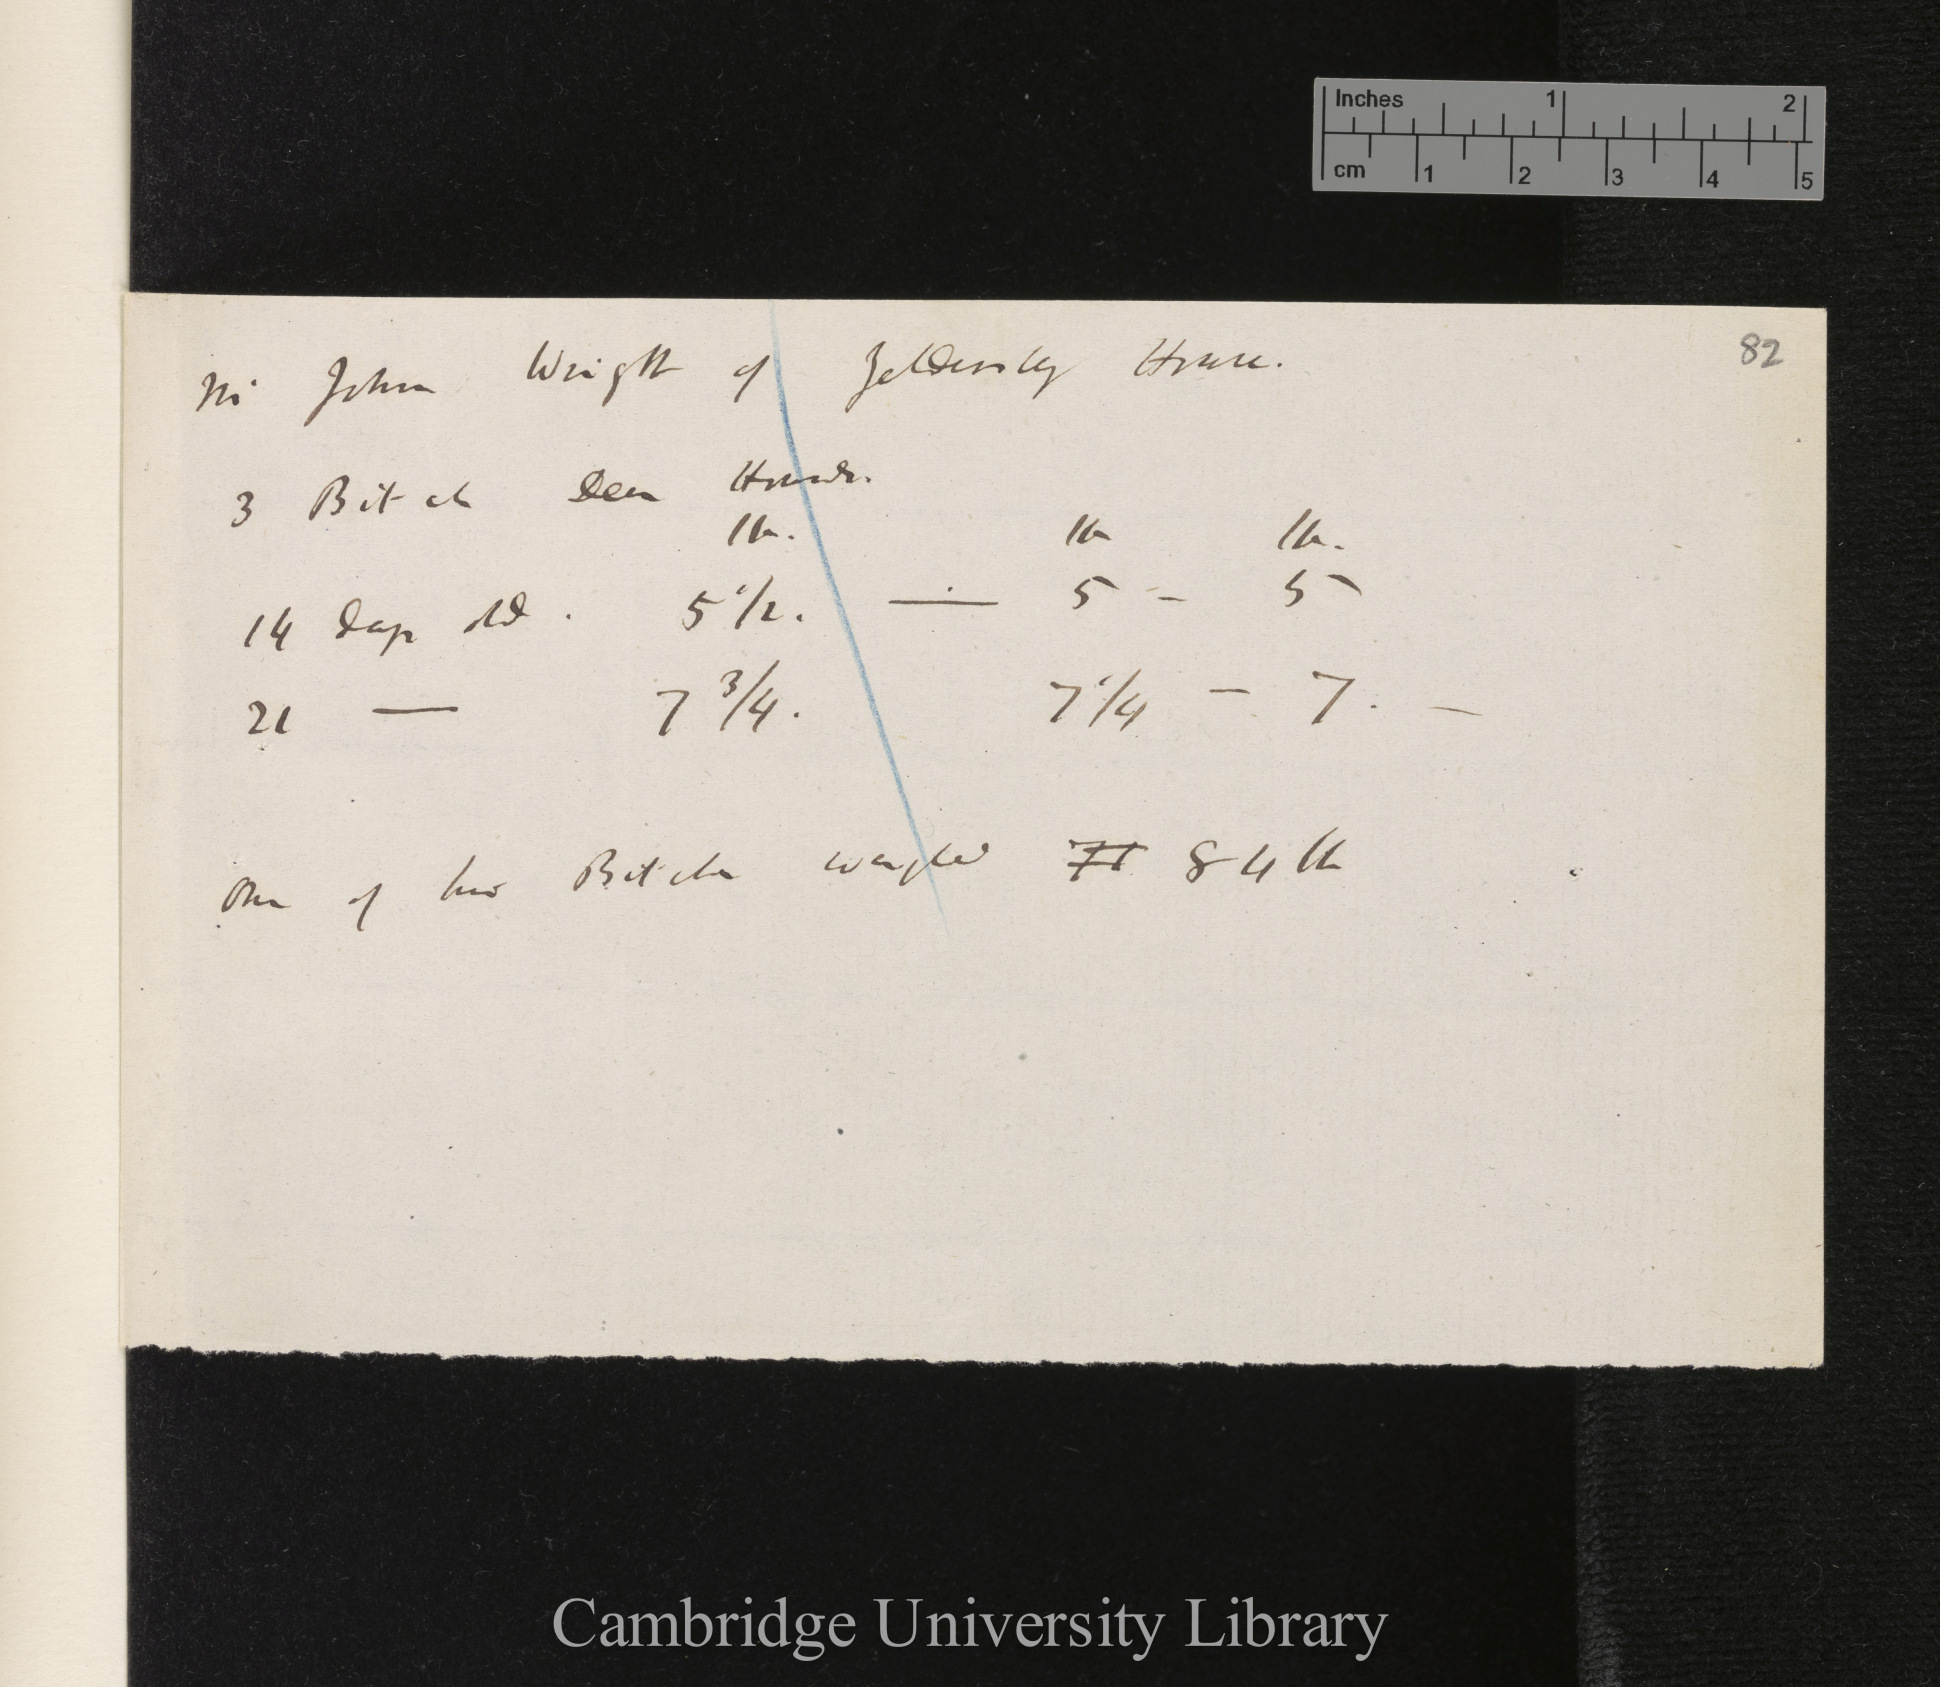 Inches 1 2
cm 1 2 3 4 5
82
Mr John Wright of Yeldersley House.
3 Bitch Deer Hounds.
lb. lb lb.
14 days old. 5 1/2. — 5 – 5
21 — 7 3/4. 7 1/4 – 7. –
One of his Bitches weighed 84 lb
Cambridge University Library